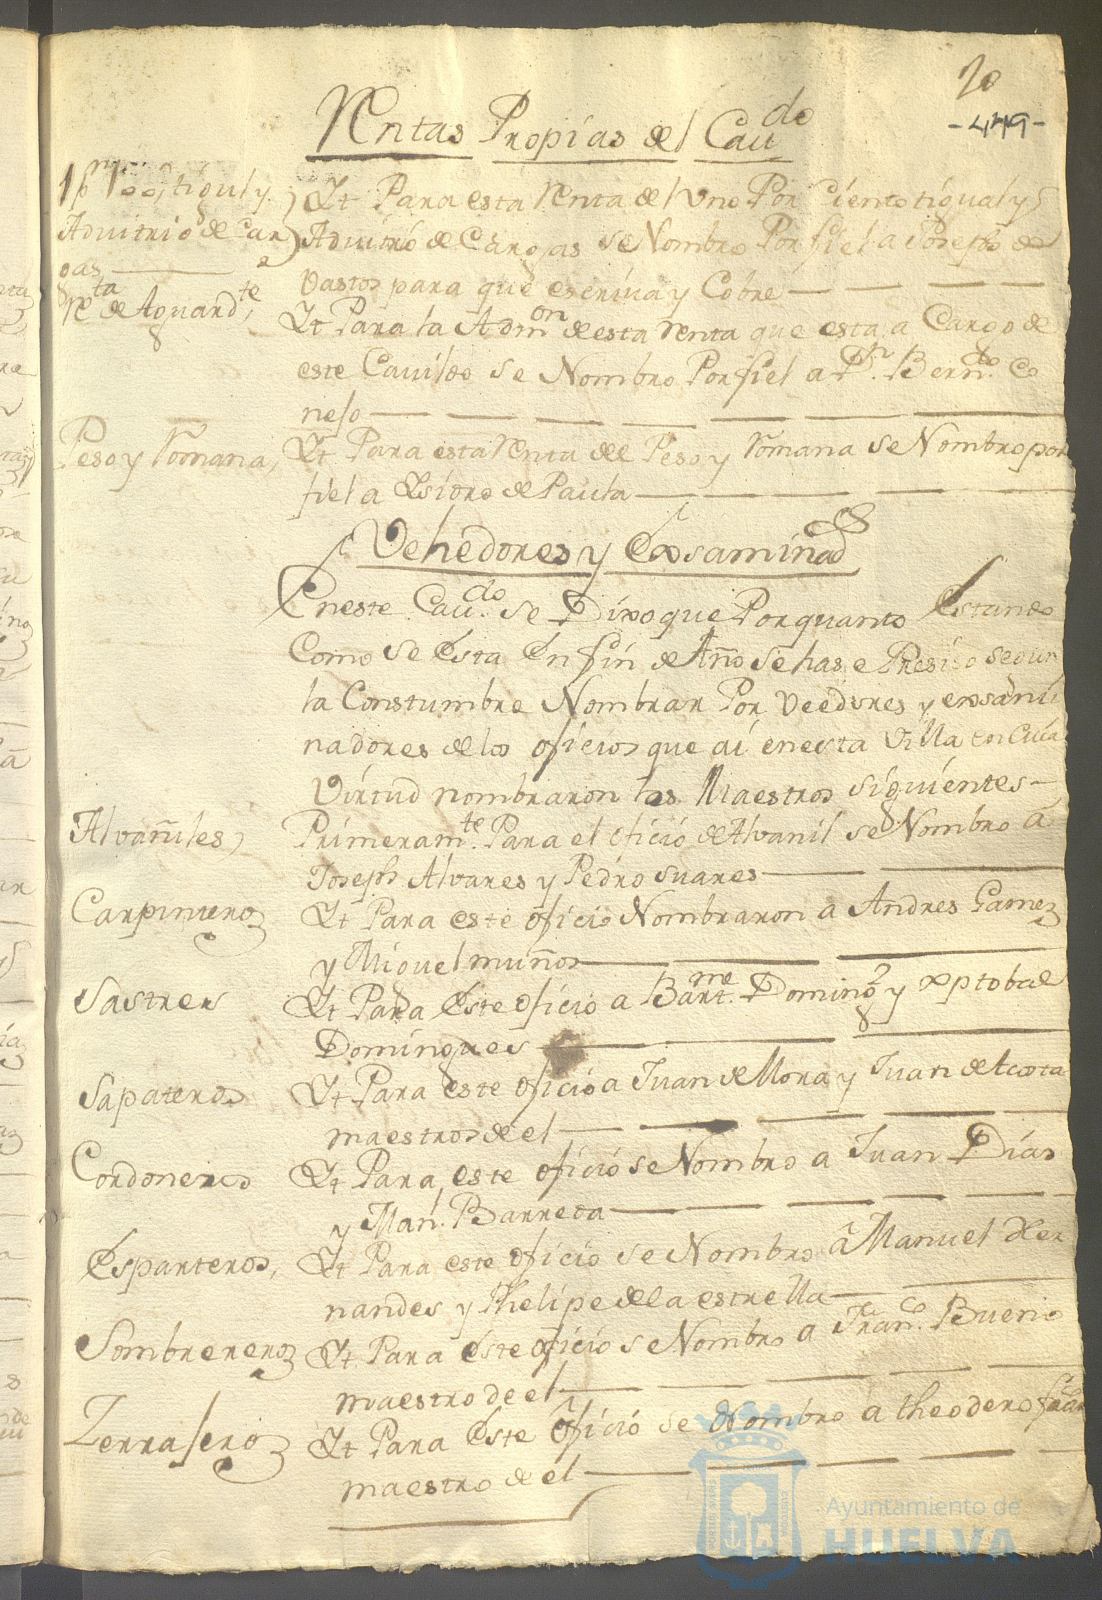 20
-449-
Rentas Propias del Cavdo
1 pr 100, tigual y
Advitrio de Car
gas
Yt Para esta Renta del Uno Por Ciento tigual y
Advitrio de Cargas se Nombro Por fiel a Joseph de
Vastos para que escriva y Cobre
Rta de Aguardte,
Yt Para la Admon de esta Renta que esta a Cargo de
este Cavildo se Nombro Por fiel a Dn. Berndo. Co
neso
Peso y Romana,
Yt Para esta Renta del Peso y Romana se Nombro por
fiel a Ysidro de Paula
Vehedores y Exsaminads
Eneste Cavdo. se Dixo que Por quanto Estando
Como se Esta En fin de Año se hase Presiso segun
la Constumbre Nombrar Por Veedores y exsami
nadores de los oficios que ai enesta Villa en Cuia
Virtud nombraron los Maestros siguientes
Alvañiles,
Primeramte. Para el oficio de Alvanil se Nombro a
Joseph Alvares y Pedro Suares
Carpinteros
Yt Para este oficio Nombraron a Andres Gamez
y Miguel muños
Sastres
Yt Para Este oficio a Bartme. Domingz y xptobal
Domingues
Sapateros
Yt Para este oficio a Juan de Mora y Juan de Acosta
maestros de el
Cordoneros
Yt Para este oficio se Nombro a Juan Dias
y Man. Barreta
Esparteros,
Yt Para este oficio se Nombro a Manuel Xer
nandes y Phelipe de la estrella
Sombrereros
Yt Para este oficio se Nombro a Franco. Bueno
maestro de el
Zerrajeros
Yt Para Este oficio se Nombro a theodoro
maestro de el
Ayuntamiento de
HUELVA